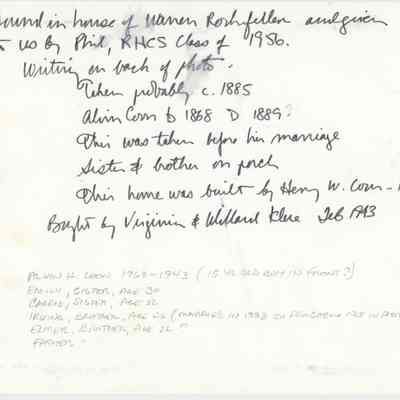 ound in house of Warren Rockefeller and given
to us by Phil, RHCS Class of 1956.
Writing on back of photo.
Taken probably c. 1885
Alvin Coon b 1868 D 1889?
This was taken before his marriage
Sister & brother on porch
This home was built by Henry W. Coon -
Bought by Virginia & Willard Kline Feb
ALVIN H. COON 1968-1943 (15 YR OLD BOY IN FRONT?)
EMILY, SISTER, AGE 30
CARRIE, SISTER, AGE 22
IRVING, BROTHER, AGE (MARRIED IN 1883
ELMER, BROTHER, AGE 22 "
FATHER "